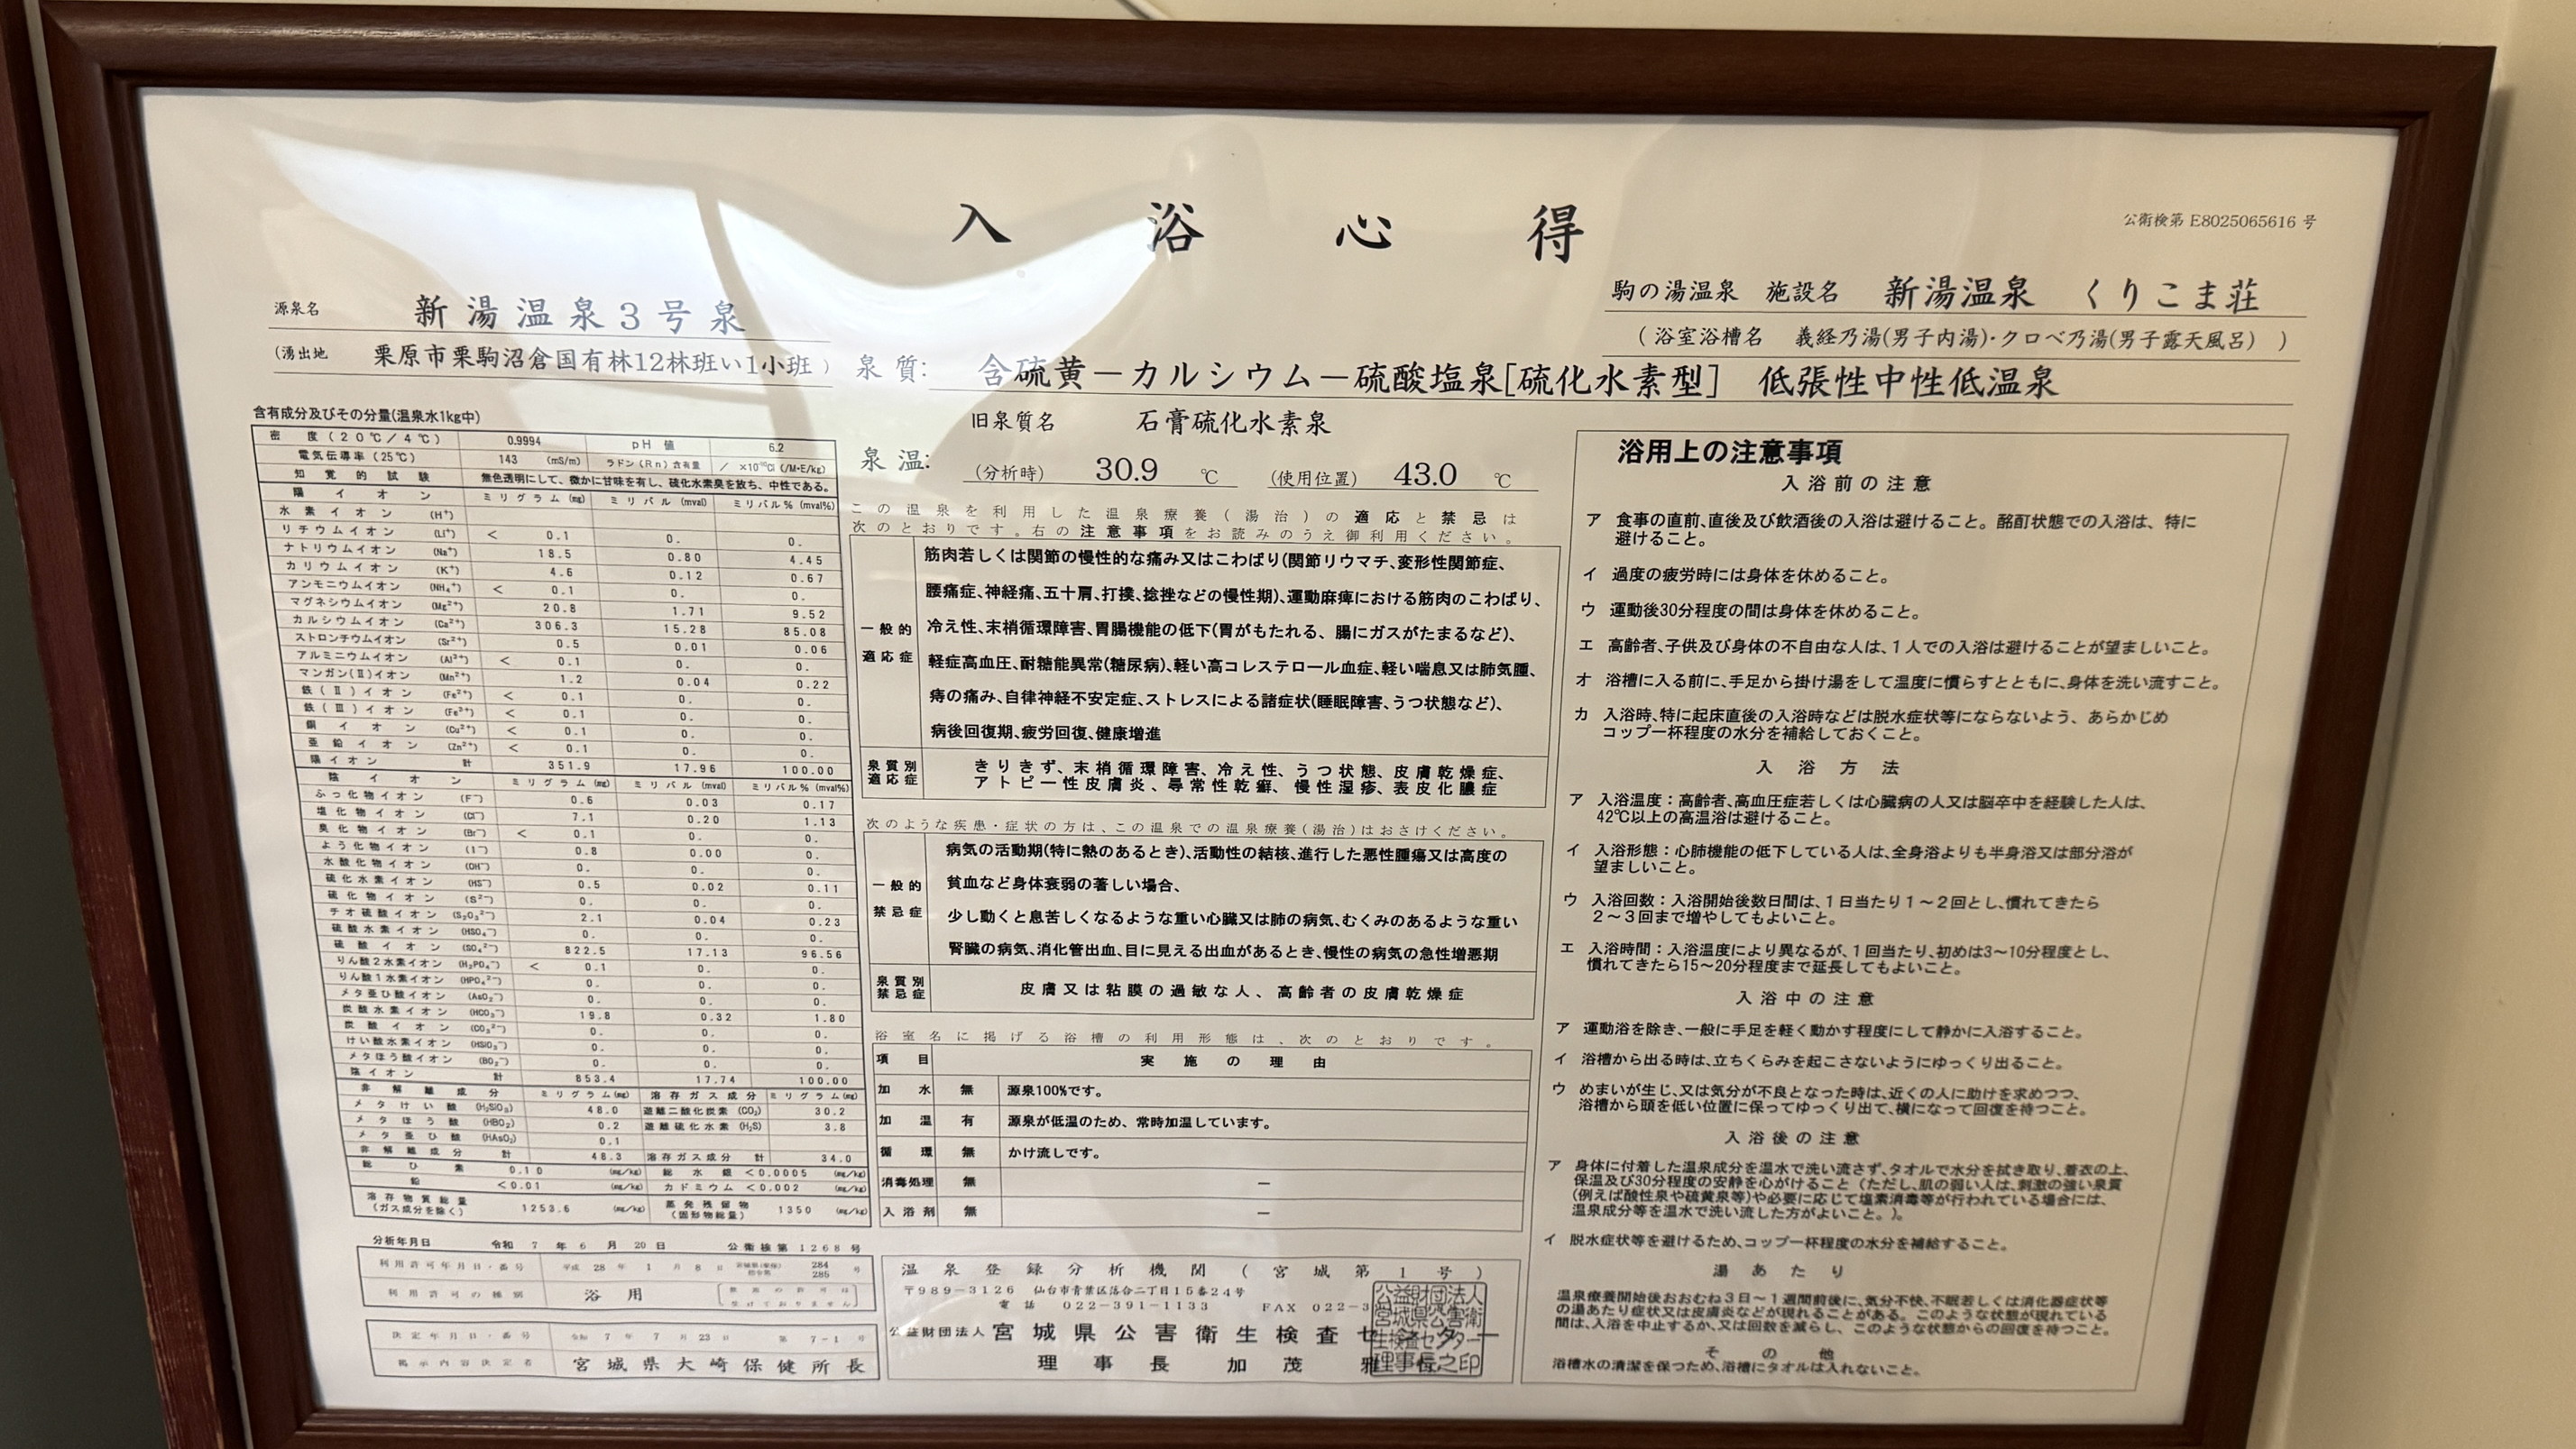 入浴心得
公衛検第 E8025065616 号
源泉名 新湯温泉3号泉
(湧出地 栗原市栗駒沼倉国有林12林班い1小班 )
駒の湯温泉 施設名 新湯温泉 くりこま荘
( 浴室浴槽名 義経乃湯(男子内湯)・クロベ乃湯(男子露天風呂) )
泉質: 含硫黄－カルシウム－硫酸塩泉[硫化水素型] 低張性中性低温泉
旧泉質名 石膏硫化水素泉
泉温: (分析時) 30.9 ℃ (使用位置) 43.0 ℃
含有成分及びその分量(温泉水1kg中)
密度(20℃/4℃) 0.9994 pH値 6.2
電気伝導率(25℃) 143 (mS/m) ラドン(Rn)含有量 / ×10⁻¹⁰Ci (/M・E/kg)
知覚的試験 無色透明にして、微かに甘味を有し、硫化水素臭を放ち、中性である。
陽イオン ミリグラム(mg) ミリバル(mval) ミリバル%(mval%)
水素イオン (H⁺)
リチウムイオン (Li⁺) < 0.1 0. 0.
ナトリウムイオン (Na⁺) 18.5 0.80 4.45
カリウムイオン (K⁺) 4.6 0.12 0.67
アンモニウムイオン (NH₄⁺) < 0.1 0. 0.
マグネシウムイオン (Mg²⁺) 20.8 1.71 9.52
カルシウムイオン (Ca²⁺) 306.3 15.28 85.08
ストロンチウムイオン (Sr²⁺) 0.5 0.01 0.06
アルミニウムイオン (Al³⁺) < 0.1 0. 0.
マンガン(Ⅱ)イオン (Mn²⁺) 1.2 0.04 0.22
鉄(Ⅱ)イオン (Fe²⁺) < 0.1 0. 0.
鉄(Ⅲ)イオン (Fe³⁺) < 0.1 0. 0.
銅イオン (Cu²⁺) < 0.1 0. 0.
亜鉛イオン (Zn²⁺) < 0.1 0. 0.
陽イオン計 351.9 17.96 100.00
陰イオン ミリグラム(mg) ミリバル(mval) ミリバル%(mval%)
ふっ化物イオン (F⁻) 0.6 0.03 0.17
塩化物イオン (Cl⁻) 7.1 0.20 1.13
臭化物イオン (Br⁻) < 0.1 0. 0.
よう化物イオン (I⁻) 0.8 0.00 0.
水酸化物イオン (OH⁻) 0. 0. 0.
硫化水素イオン (HS⁻) 0.5 0.02 0.11
硫化物イオン (S²⁻) 0. 0. 0.
チオ硫酸イオン (S₂O₃²⁻) 2.1 0.04 0.23
硫酸水素イオン (HSO₄⁻) 0. 0. 0.
硫酸イオン (SO₄²⁻) 822.5 17.13 96.56
りん酸2水素イオン (H₂PO₄⁻) < 0.1 0. 0.
りん酸1水素イオン (HPO₄²⁻) 0. 0. 0.
メタ亜ひ酸イオン (AsO₂⁻) 0. 0. 0.
炭酸水素イオン (HCO₃⁻) 19.8 0.32 1.80
炭酸イオン (CO₃²⁻) 0. 0. 0.
けい酸水素イオン (HSiO₃⁻) 0. 0. 0.
メタほう酸イオン (BO₂⁻) 0. 0. 0.
陰イオン計 853.4 17.74 100.00
非解離成分 ミリグラム(mg) 溶存ガス成分 ミリグラム(mg)
メタけい酸 (H₂SiO₃) 48.0 遊離二酸化炭素 (CO₂) 30.2
メタほう酸 (HBO₂) 0.2 遊離硫化水素 (H₂S) 3.8
メタ亜ひ酸 (HAsO₂) 0.1
非解離成分計 48.3 溶存ガス成分計 34.0
総ひ素 0.10 (mg/kg) 総水銀 <0.0005 (mg/kg)
鉛 <0.01 (mg/kg) カドミウム <0.002 (mg/kg)
溶存物質総量 (ガス成分を除く) 1253.6 (mg/kg) 蒸発残留物 (固形物総量) 1350 (mg/kg)
分析年月日 令和 7 年 6 月 20 日 公衛検第1268号
利用許可年月日・番号 平成 28 年 1 月 8 日 284 285 号
利用許可の種別 浴用
決定年月日・番号 令和 7 年 7 月 23 日 第 7-1 号
掲示内容決定者 宮城県大崎保健所長
この温泉を利用した温泉療養(湯治)の適応と禁忌は
次のとおりです。右の注意事項をお読みのうえ御利用ください。
一般的適応症
筋肉若しくは関節の慢性的な痛み又はこわばり(関節リウマチ、変形性関節症、
腰痛症、神経痛、五十肩、打撲、捻挫などの慢性期)、運動麻痺における筋肉のこわばり、
冷え性、末梢循環障害、胃腸機能の低下(胃がもたれる、腸にガスがたまるなど)、
軽症高血圧、耐糖能異常(糖尿病)、軽い高コレステロール血症、軽い喘息又は肺気腫、
痔の痛み、自律神経不安定症、ストレスによる諸症状(睡眠障害、うつ状態など)、
病後回復期、疲労回復、健康増進
泉質別適応症
きりきず、末梢循環障害、冷え性、うつ状態、皮膚乾燥症、
アトピー性皮膚炎、尋常性乾癬、慢性湿疹、表皮化膿症
次のような疾患・症状の方は、この温泉での温泉療養(湯治)はおさけください。
一般的禁忌症
病気の活動期(特に熱のあるとき)、活動性の結核、進行した悪性腫瘍又は高度の
貧血など身体衰弱の著しい場合、
少し動くと息苦しくなるような重い心臓又は肺の病気、むくみのあるような重い
腎臓の病気、消化管出血、目に見える出血があるとき、慢性の病気の急性増悪期
泉質別禁忌症
皮膚又は粘膜の過敏な人、高齢者の皮膚乾燥症
浴室名に掲げる浴槽の利用形態は、次のとおりです。
項目 実施の理由
加水 無 源泉100%です。
加温 有 源泉が低温のため、常時加温しています。
循環 無 かけ流しです。
消毒処理 無 ―
入浴剤 無 ―
温泉登録分析機関(宮城第1号)
〒989-3126 仙台市青葉区落合二丁目15番24号
電話 022-391-1133 FAX 022-3
公益財団法人 宮城県公害衛生検査センター
理事長 加茂雅
公益財団法人宮城県公害衛生検査センター理事長之印
浴用上の注意事項
入浴前の注意
ア 食事の直前、直後及び飲酒後の入浴は避けること。酩酊状態での入浴は、特に
避けること。
イ 過度の疲労時には身体を休めること。
ウ 運動後30分程度の間は身体を休めること。
エ 高齢者、子供及び身体の不自由な人は、1人での入浴は避けることが望ましいこと。
オ 浴槽に入る前に、手足から掛け湯をして温度に慣らすとともに、身体を洗い流すこと。
カ 入浴時、特に起床直後の入浴時などは脱水症状等にならないよう、あらかじめ
コップ一杯程度の水分を補給しておくこと。
入浴方法
ア 入浴温度：高齢者、高血圧症若しくは心臓病の人又は脳卒中を経験した人は、
42℃以上の高温浴は避けること。
イ 入浴形態：心肺機能の低下している人は、全身浴よりも半身浴又は部分浴が
望ましいこと。
ウ 入浴回数：入浴開始後数日間は、1日当たり1～2回とし、慣れてきたら
2～3回まで増やしてもよいこと。
エ 入浴時間：入浴温度により異なるが、1回当たり、初めは3～10分程度とし、
慣れてきたら15～20分程度まで延長してもよいこと。
入浴中の注意
ア 運動浴を除き、一般に手足を軽く動かす程度にして静かに入浴すること。
イ 浴槽から出る時は、立ちくらみを起こさないようにゆっくり出ること。
ウ めまいが生じ、又は気分が不良となった時は、近くの人に助けを求めつつ、
浴槽から頭を低い位置に保ってゆっくり出て、横になって回復を待つこと。
入浴後の注意
ア 身体に付着した温泉成分を温水で洗い流さず、タオルで水分を拭き取り、着衣の上、
保温及び30分程度の安静を心がけること(ただし、肌の弱い人は、刺激の強い泉質
(例えば酸性泉や硫黄泉等)や必要に応じて塩素消毒等が行われている場合には、
温泉成分等を温水で洗い流した方がよいこと。)。
イ 脱水症状等を避けるため、コップ一杯程度の水分を補給すること。
湯あたり
温泉療養開始後おおむね3日～1週間前後に、気分不快、不眠若しくは消化器症状等
の湯あたり症状又は皮膚炎などが現れることがある。このような状態が現れている
間は、入浴を中止するか、又は回数を減らし、このような状態からの回復を待つこと。
その他
浴槽水の清潔を保つため、浴槽にタオルは入れないこと。